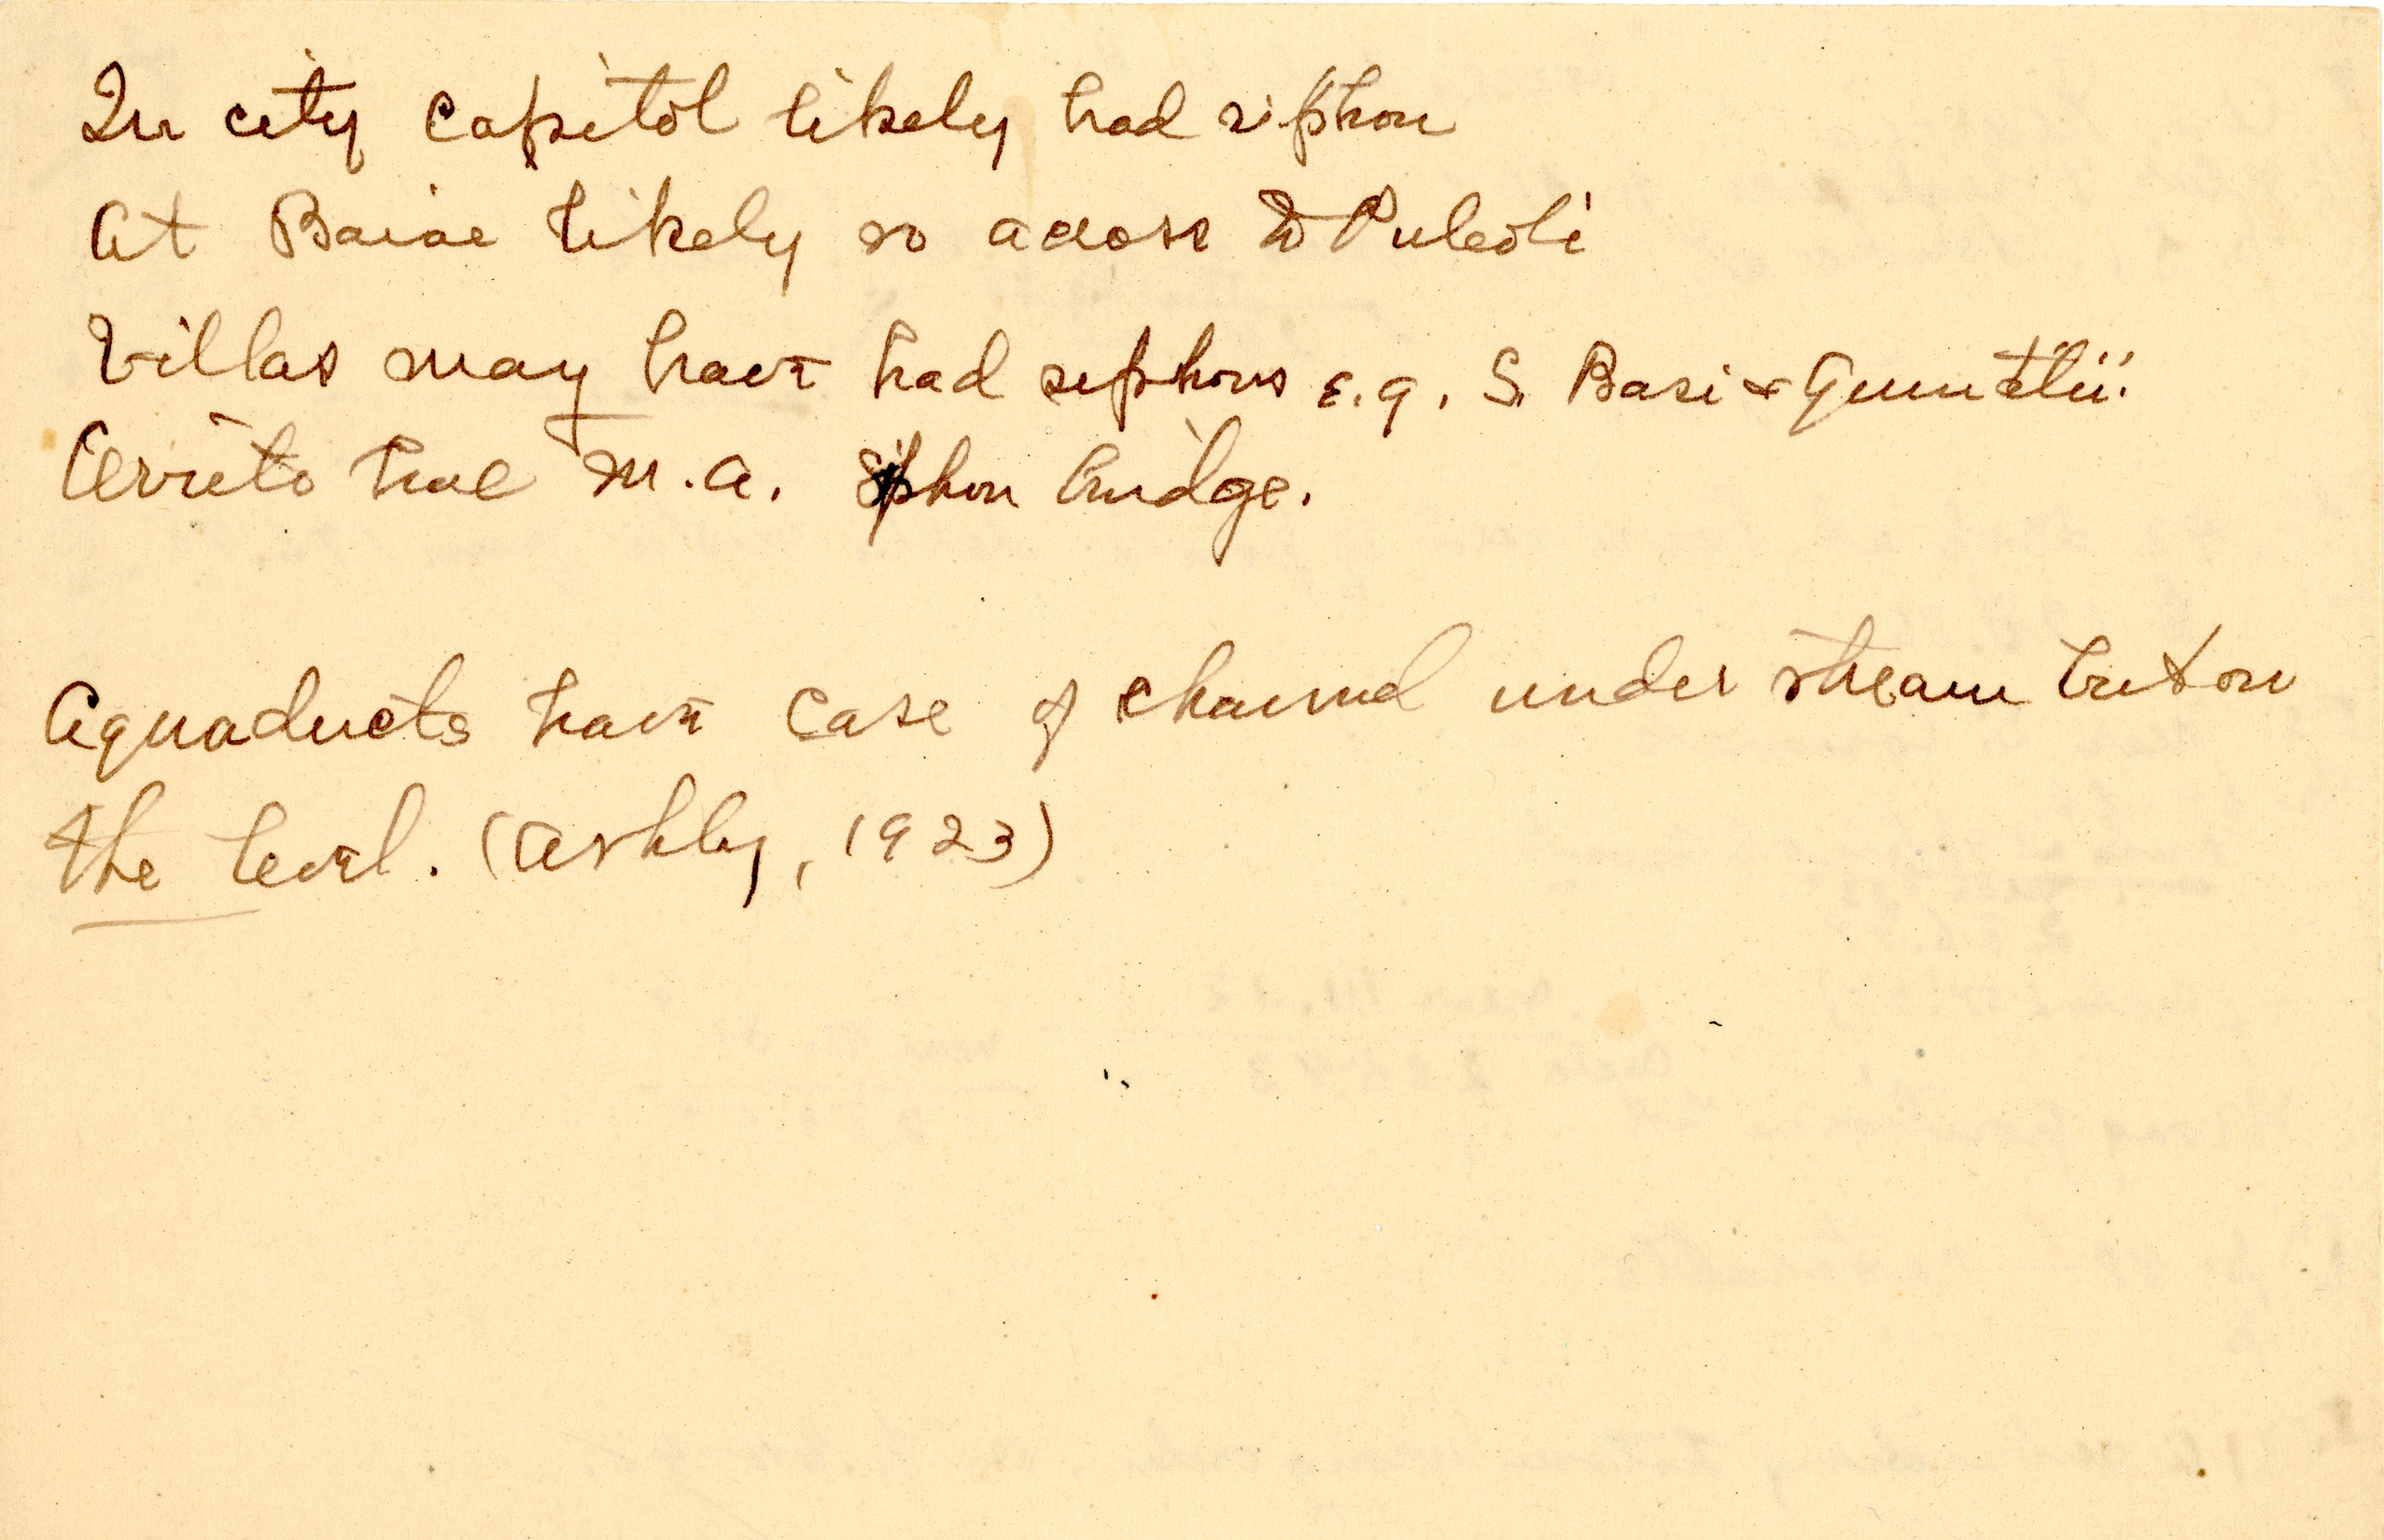 In city capitol likely had siphon
At Baiae likely so across to Puteoli
Villas may have had siphons e.g. S. Basi & Quintilii.
Cerreto has M.A. siphon bridge.
Aquaducts have case of channel under stream but on
the level. (Ashby, 1923)